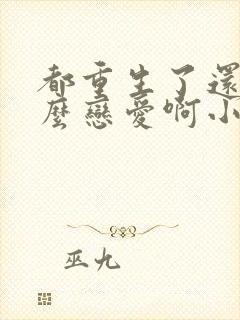 都重生了還
麼戀愛啊小
巫九